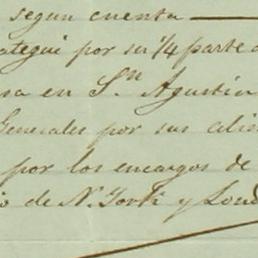 segun cuenta
ategui por su 1/4 parte
sa en Sn Agustin
Generales por sus
por los encargos de
io de N. York y Lond